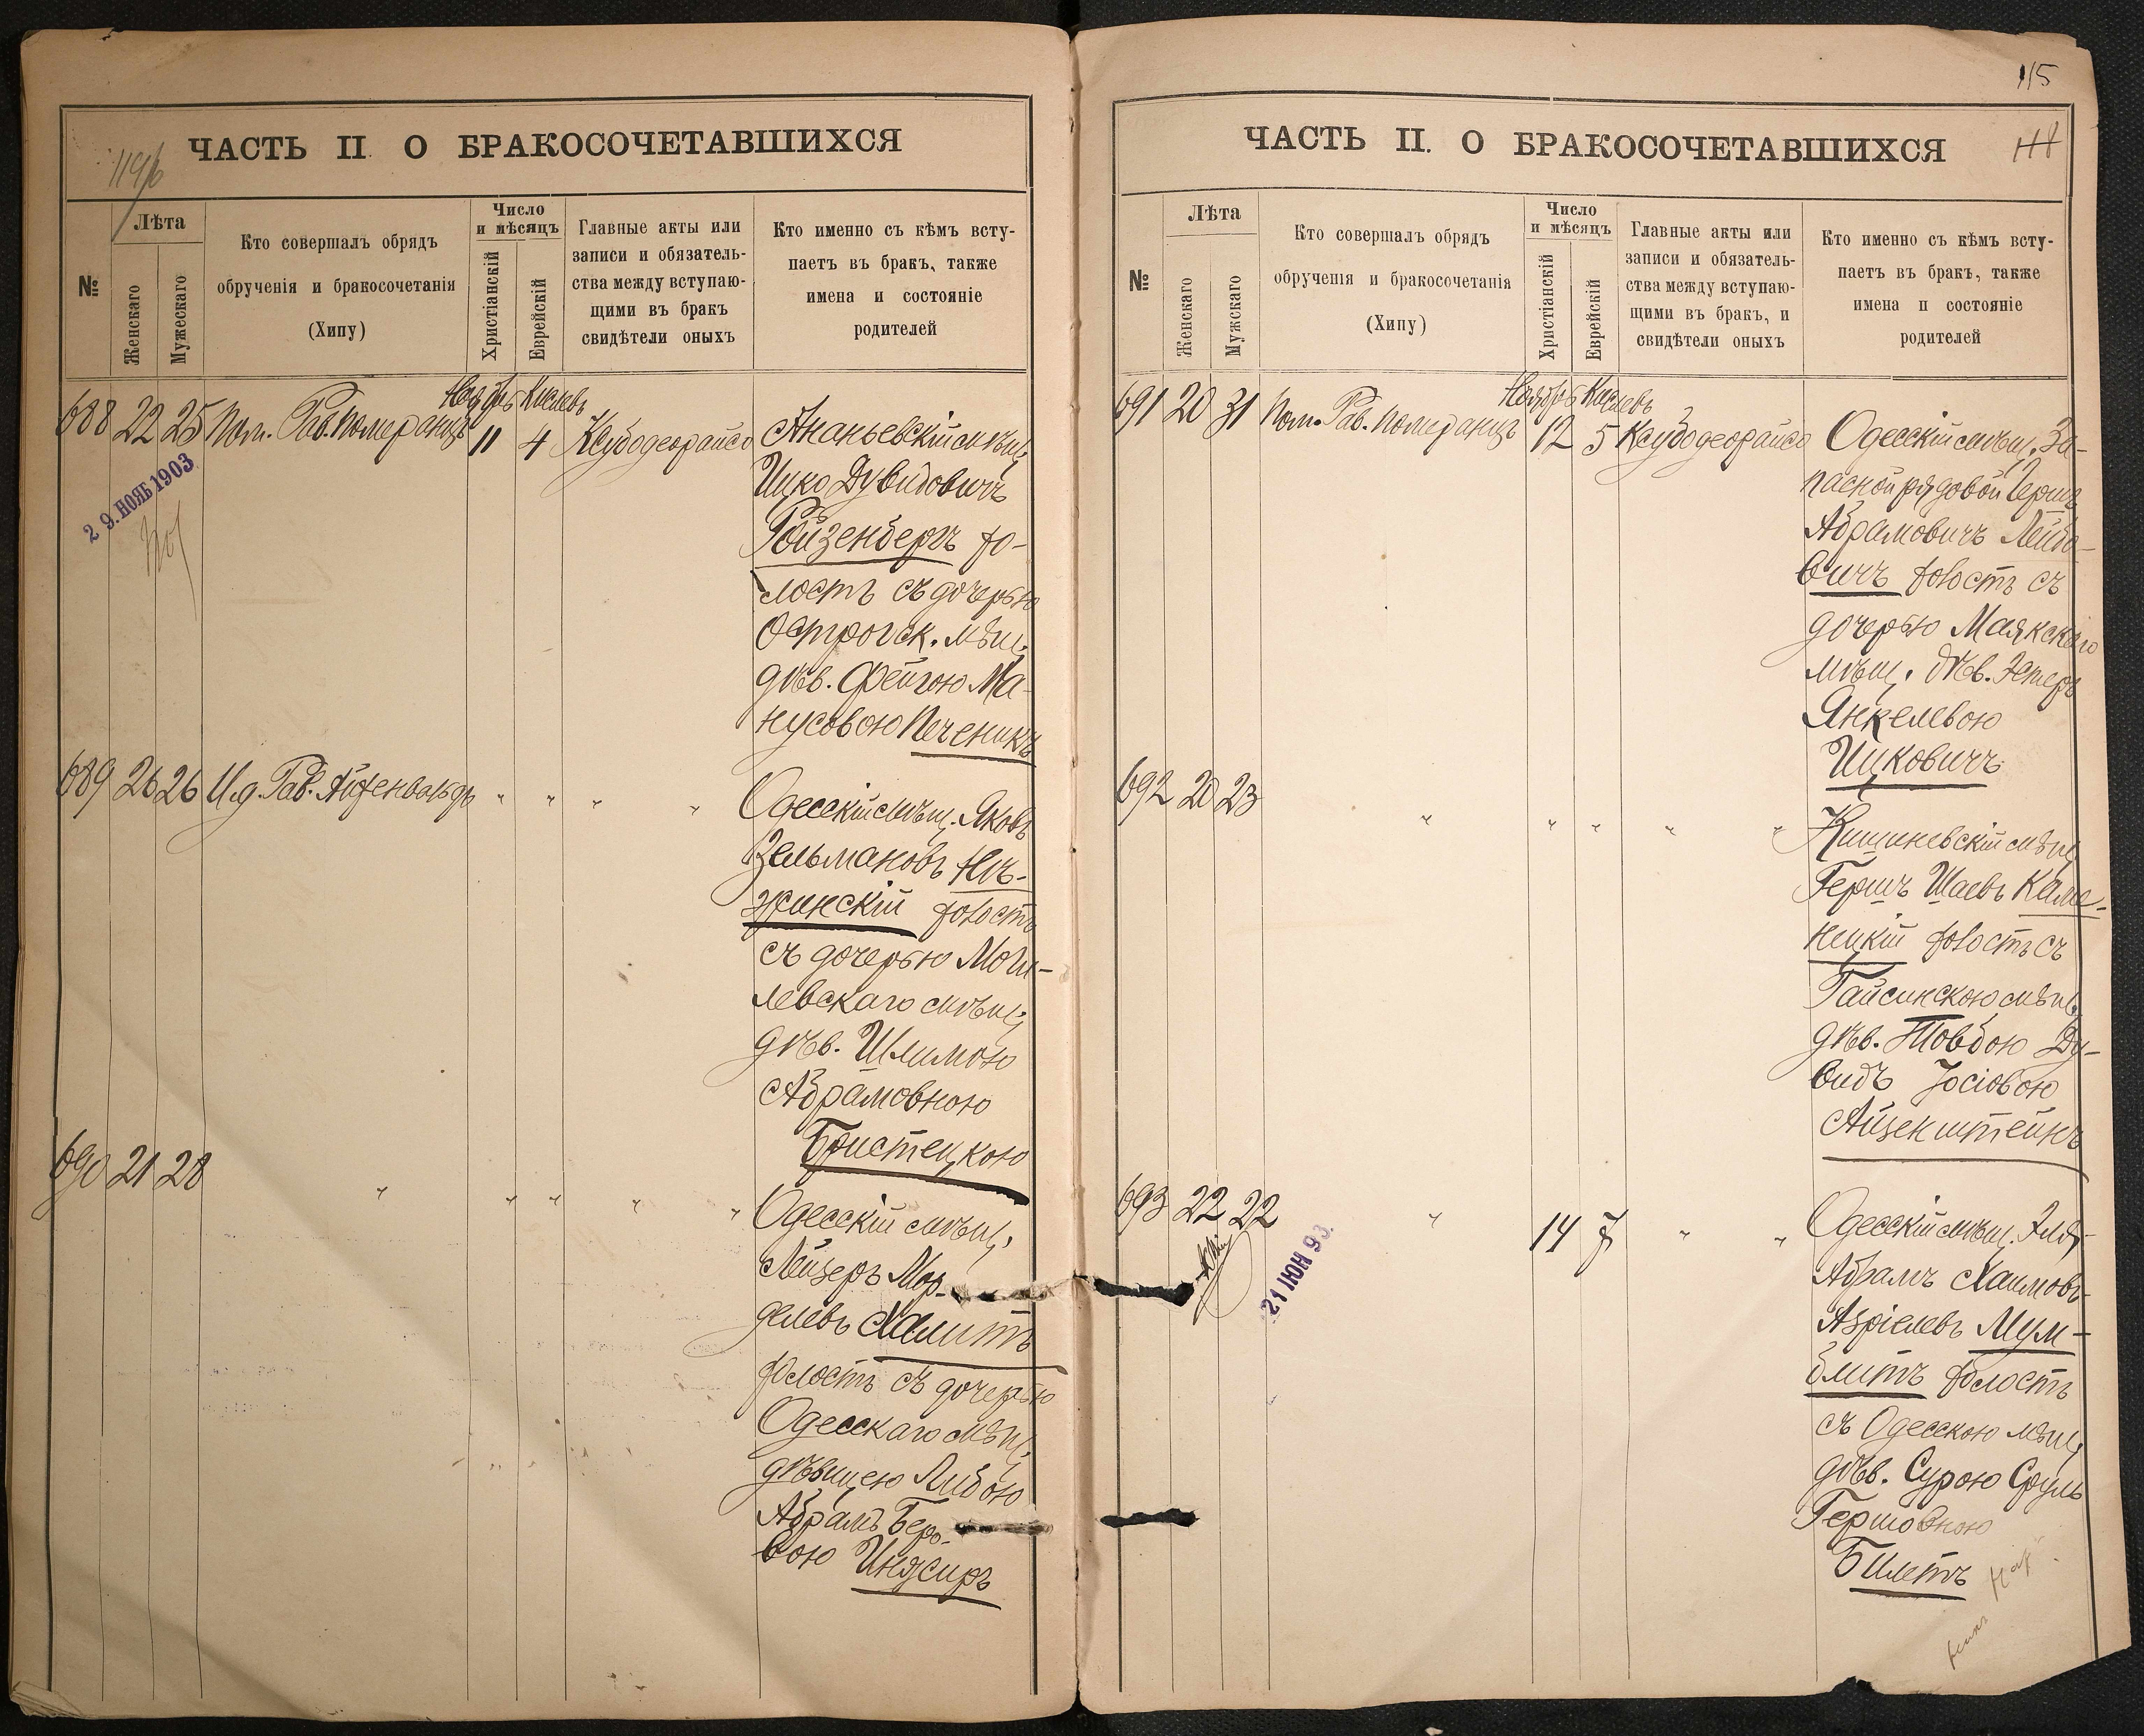 ЧАСТЬ II О БРАКОСОЧЕТАВШИХСЯ
№
Лѣта
Женскаго
Мужескаго
Кто совершалъ обрядъ
обрученія и бракосочетанія
(Хипу)
Число
и мѣсяцъ
Христіанскій
Еврейскій
Главные акты или
записи и обязатель-
ства между вступаю-
щими въ бракъ
свидѣтели оныхъ
Кто именно съ кѣмъ всту-
паетъ въ бракъ, также
имена и состояніе
родителей
Ноябрь Кислевъ
688 22 25 Пом. Рав. Померанцъ 11 4 Ксубодеорайсо
29. НОЯБ 1903
Ананьевскій мѣщ.
Ицко Дувидовичъ
Ройзенбергъ хо-
лостъ съ дочерью
Острогск. мѣщ.
дѣв. Фейгою Ма-
нусовою Печеникъ
689 26 26 И.д. Рав. Айхенвальдъ " " " "
Одесскій мѣщ. Яковъ
Зельмановъ Нѣ-
жинскій холостъ
съ дочерью Моги-
левскаго мѣщ.
дѣв. Шлимою
Абрамовною
Бристецкою
690 21 28 " " " " "
Одесскій мѣщ.
Лейзеръ Мор-
делевъ Халитъ
холостъ съ дочерью
Одесскаго мѣщ.
дѣвицею Либою
Абрамъ Беро-
вою Инясиръ
115
118
ЧАСТЬ II. О БРАКОСОЧЕТАВШИХСЯ
№
Лѣта
Женскаго
Мужскаго
Кто совершалъ обрядъ
обрученія и бракосочетанія
(Хипу)
Число
и мѣсяцъ
Христіанскій
Еврейскій
Главные акты или
записи и обязатель-
ства между вступаю-
щими въ бракъ, и
свидѣтели оныхъ
Кто именно съ кѣмъ всту-
паетъ въ бракъ, также
имена и состояніе
родителей
Ноябрь Кислевъ
691 20 31 Пом. Рав. Померанцъ 12 5 Ксубодеорайсо
Одесскій мѣщ. За-
пасной рядовой Гершъ
Абрамовичъ Лейбо-
вичъ холостъ съ
дочерью Маякскаго
мѣщ. дѣв. Эстеръ
Янкелевою
Ицковичъ
692 20 23 " " " " "
Кишиневскій мѣщ.
Гершъ Шаевъ Каме-
нецкій холостъ съ
Гайсинскою мѣщ.
дѣв. Товбою Ду-
видъ Іосіовою
Айзенштейнъ
693 22 22 " 14 7 " "
21 ИЮН 93.
Одесскій мѣщ. Элья
Абрамъ Хаимовъ
Азріелевъ Мум-
блитъ холостъ
съ Одесскою мѣщ.
дѣв. Сурою Сруль
Гершовною
Билетъ